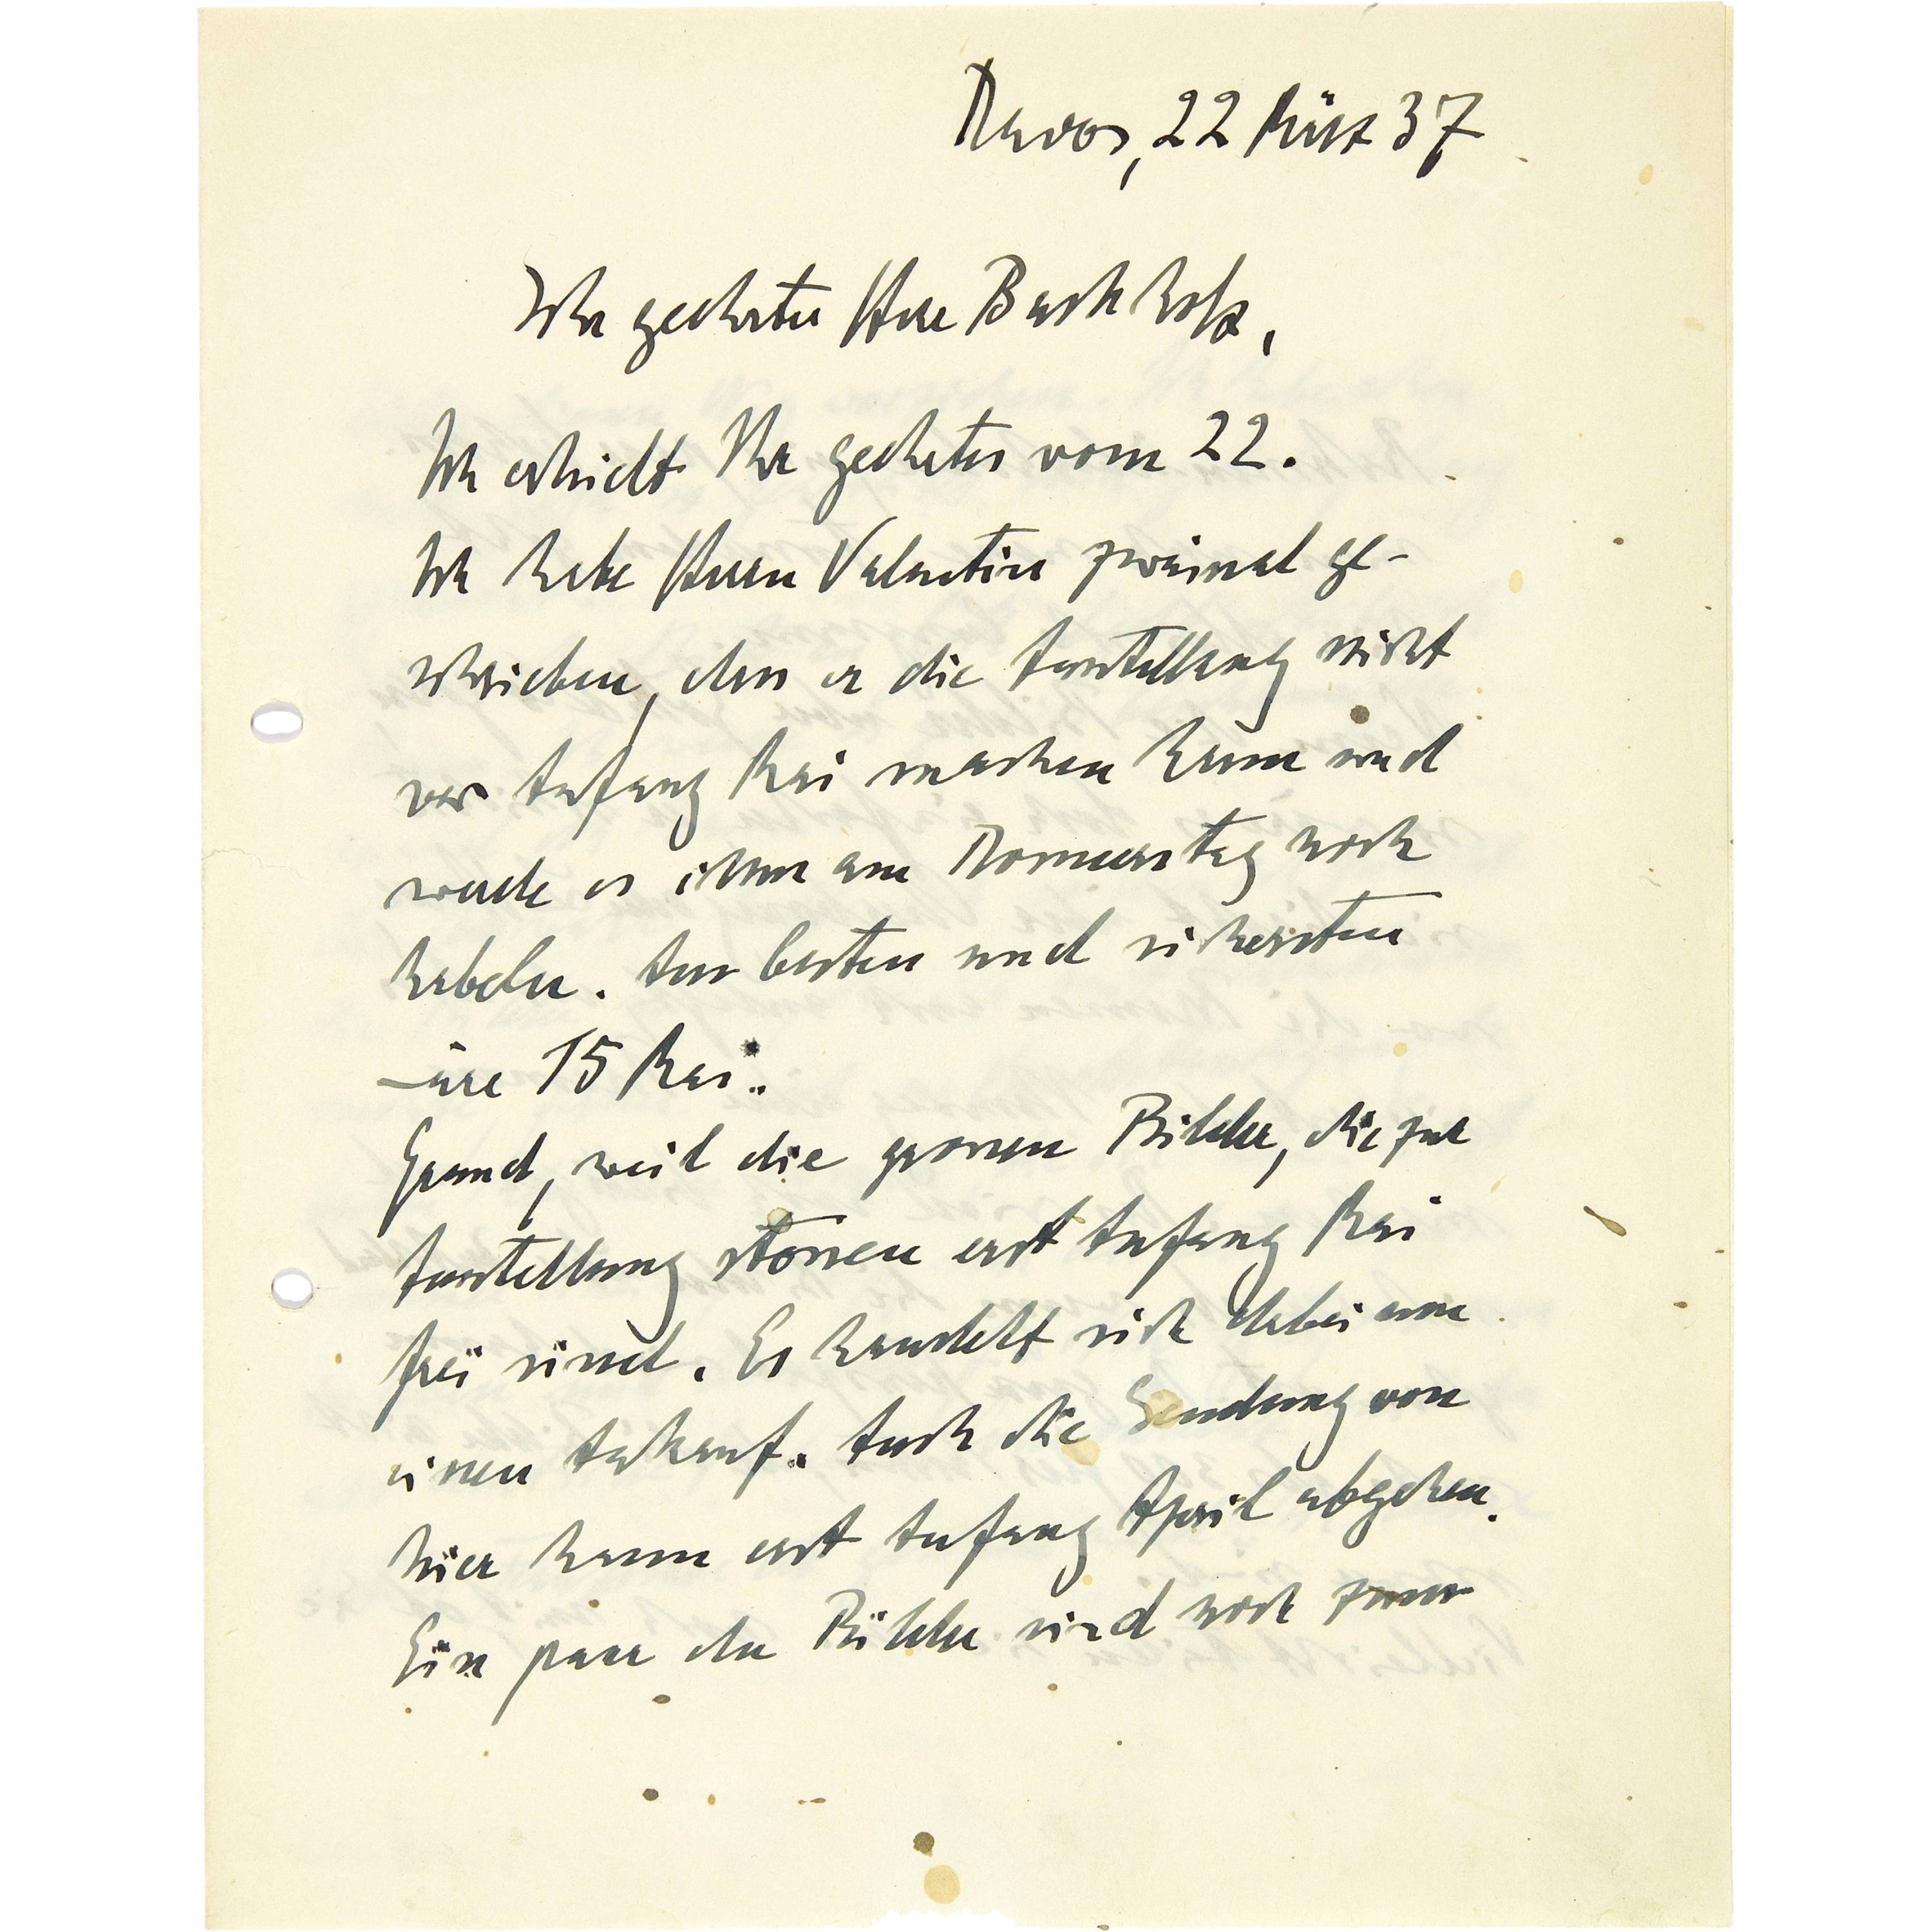 Davos, 22 März 37
Sehr geehrter Herr Buchholz,
Ich erhielt Ihr geehrtes vom 22.
Ich habe Herrn Valentin zweimal ge-
schrieben, dass er die Ausstellung nicht
vor Anfang Mai machen kann und
werde es ihm am Donnerstag noch
kabeln. Am besten und sichersten
wäre 15 Mai.
Grund, weil die grossen Bilder, die zur
Ausstellung stossen erst Anfang Mai
frei sind. Es handelt sich dabei um
einen Ankauf. Auch die Sendung von
hier kann erst Anfang April abgehen.
Ein paar der Bilder sind noch zum